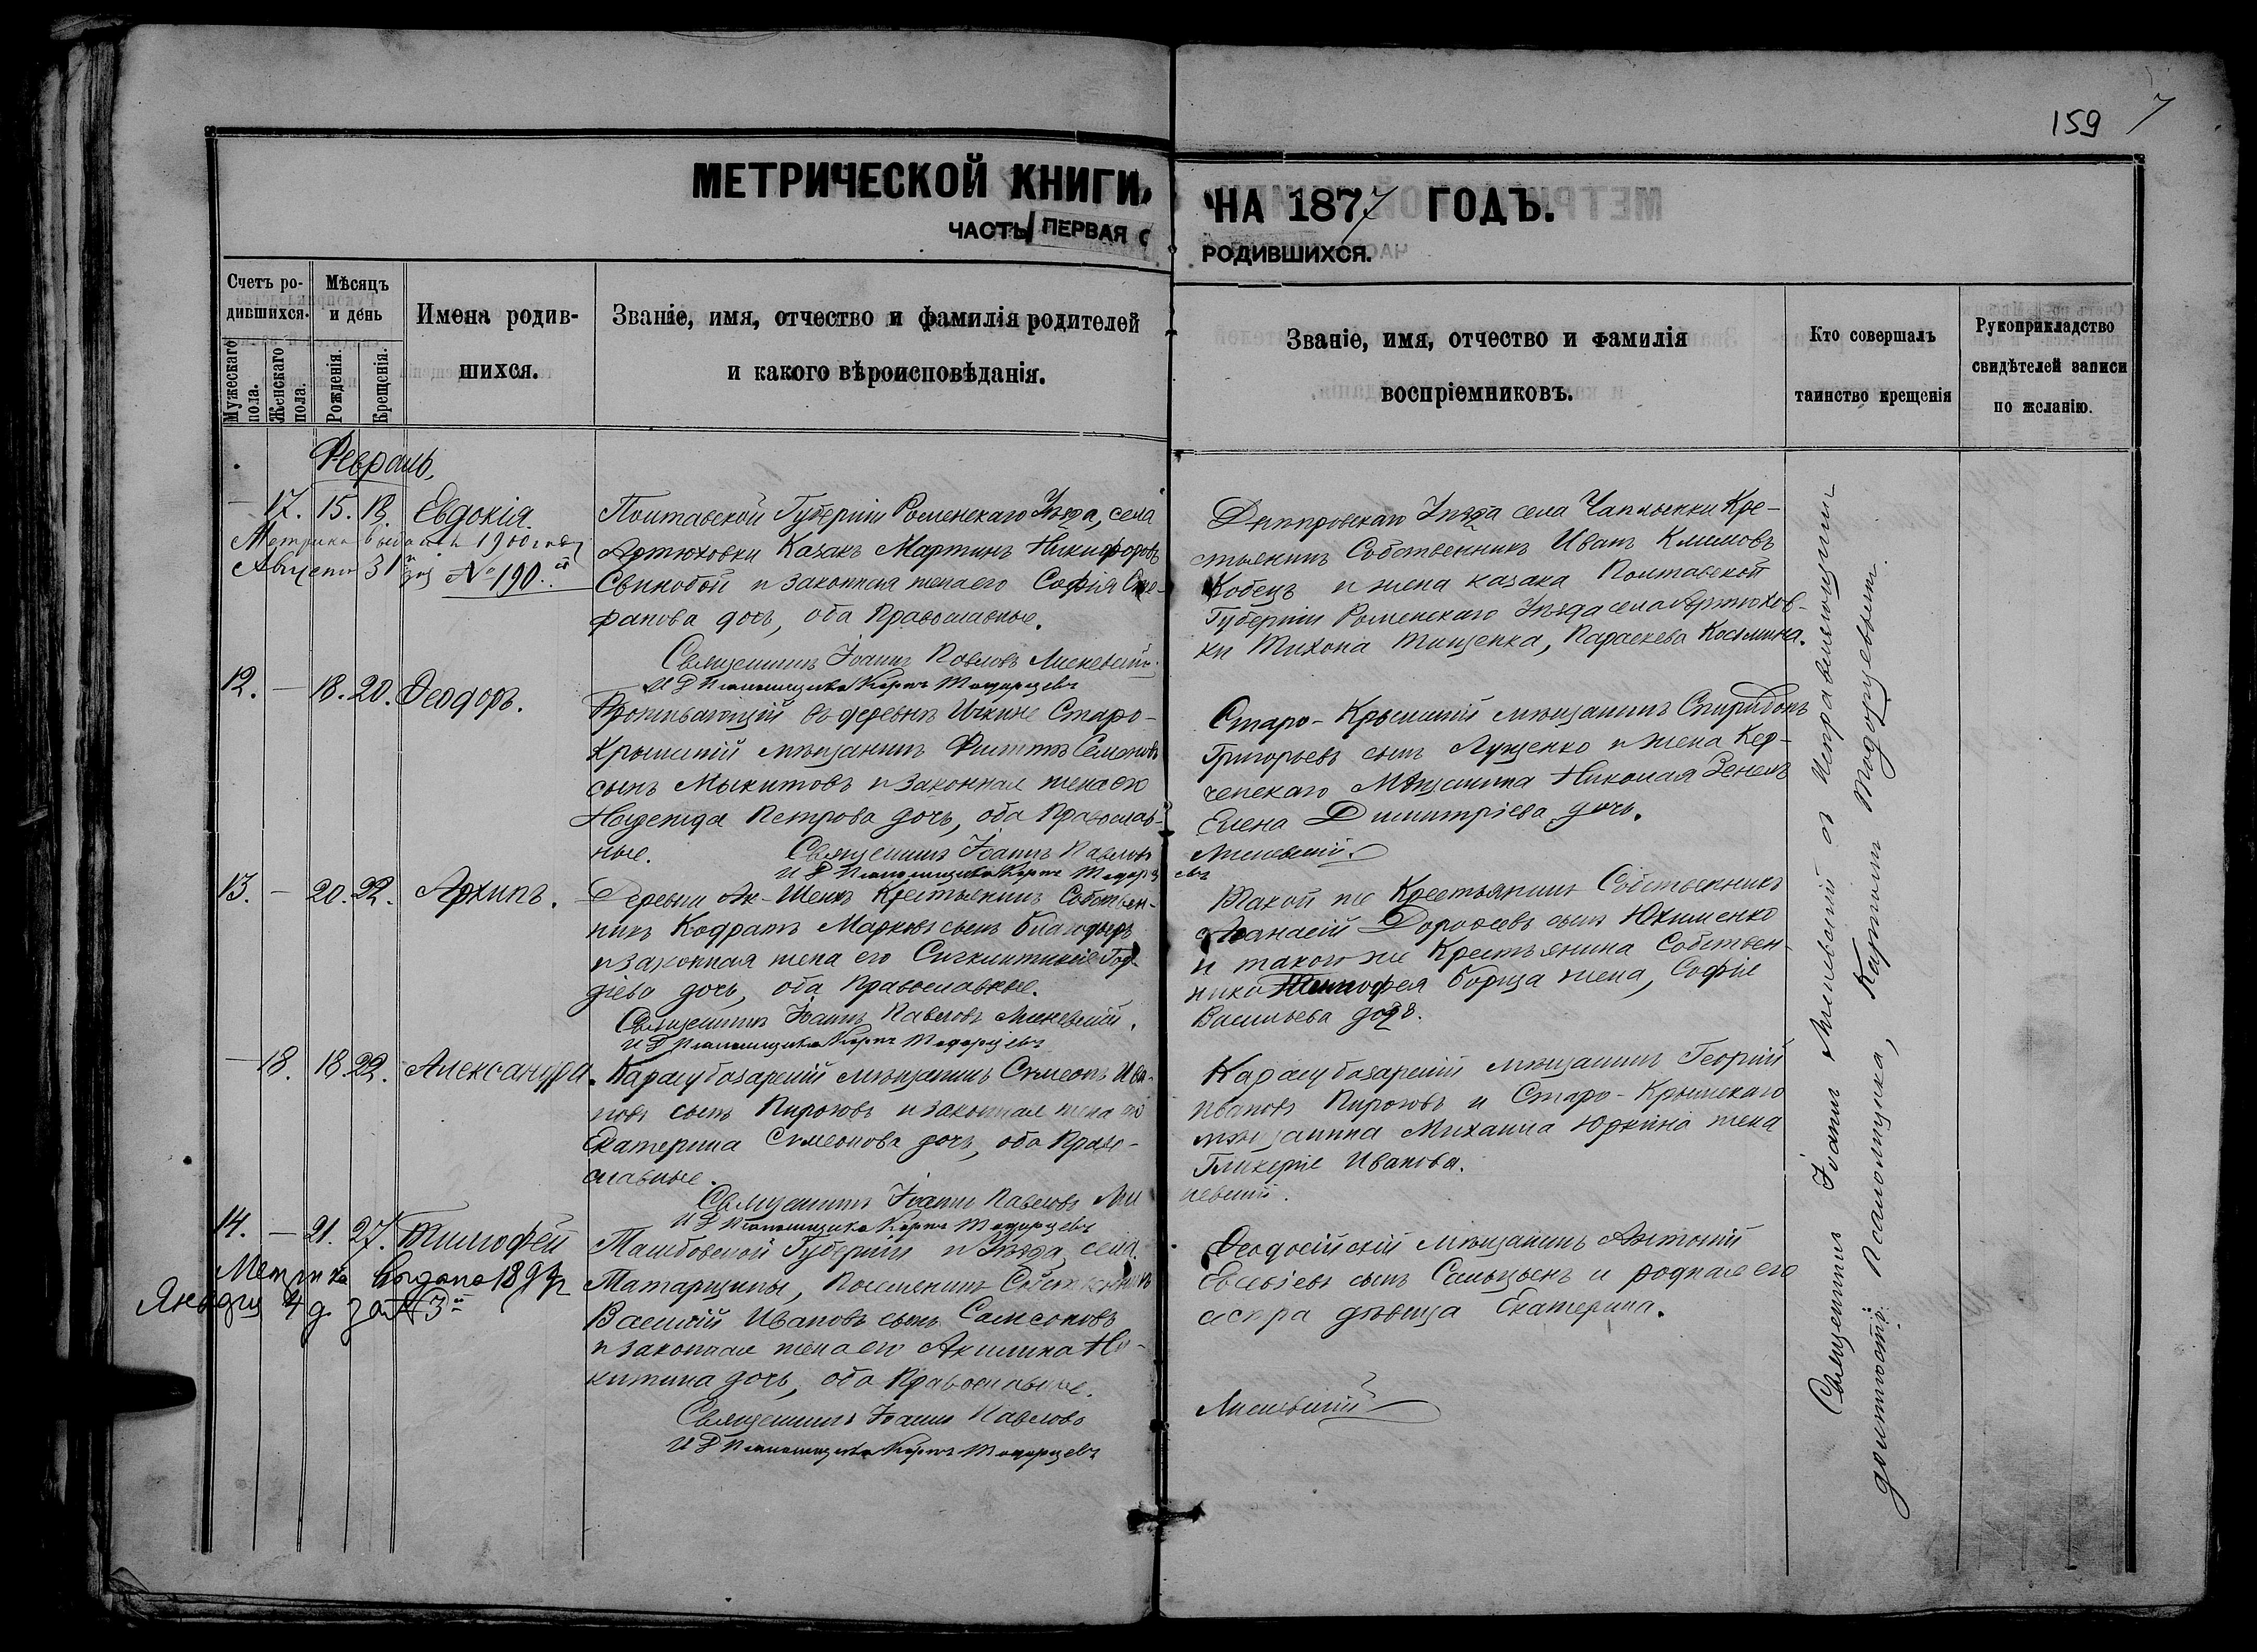 159 7
МЕТРИЧЕСКОЙ КНИГИ
НА 1877 ГОДЪ.
ЧАСТЬ ПЕРВАЯ
РОДИВШИХСЯ.
Счетъ ро-
дившихся.
Мужескаго пола.
Женскаго пола.
Мѣсяцъ
и день
Рожденія.
Крещенія.
Имена родив-
шихся.
Званіе, имя, отчество и фамилія родителей
и какого вѣроисповѣданія.
Званіе, имя, отчество и фамилія
воспріемниковъ.
Кто совершалъ
таинство крещенія
Рукоприкладство
свидѣтелей записи
по желанію.
Февраль.
— 17. 15. 18. Евдокія.
Метрика выдана 1900 году
Августа 31 за № 190.
Полтавской Губерніи Роменскаго Уѣзда, села
Артюховки Казакъ Мартинъ Никифоровъ
Свинобой и законная жена его Софія Сте-
фанова дочь, оба Православные.
Священникъ Іоаннъ Павловъ
И Д Псаломщика Карпъ
Днѣпровскаго Уѣзда села Чаплынки Кре-
стьянинъ Собственникъ Иванъ Климовъ
Кобецъ и жена казака Полтавской
Губерніи Роменскаго Уѣзда села Артюхов-
ки Тихона Тищенка, Параскева Косьмина.
12. — 18. 20. Феодоръ.
Проживающій въ деревнѣ Старо-
Крымскій мѣщанинъ Филиппъ Семеновъ
сынъ Мыкитовъ и законная жена его
Надежда Петрова дочь, оба Православ-
ные. Священникъ Іоаннъ Павловъ
И Д Псаломщика Карпъ
Старо-Крымскій мѣщанинъ Спиридонъ
Григорьевъ сынъ Лущенко и жена Кер-
ченскаго Мѣщанина Николая
Елена Димитріева дочь.
13. — 20. 22. Архипъ.
Деревни Ак-Шеихъ Крестьянинъ Собствен-
никъ Кодратъ Марковъ сынъ
и законная жена его
дочь, оба Православные.
Священникъ Іоаннъ Павловъ
И Д Псаломщика Карпъ
Такой же Крестьянинъ Собственникъ
Афанасій Дорофеевъ сынъ Юхименко
и такого же Крестьянина Собствен-
ника Тимофея Борща жена, Софія
Васильева дочь.
— 18. 18 22. Александра.
Карасубазарскій мѣщанинъ Симеонъ Ива-
новъ сынъ Пироговъ и законная жена его
Екатерина Симеонова дочь, оба Право-
славные.
Священникъ Іоаннъ Павловъ
И Д Псаломщика Карпъ
Карасубазарскій мѣщанинъ Георгій
Ивановъ Пироговъ и Старо-Крымскаго
мѣщанина Михаила Юркина жена
Гликерія Иванова.
14. — 21. 27. Тимофей
Метрика выдана
Января 4 д. за № 3
Тамбовской Губерніи и Уѣзда, села
Татарщины, Поселянинъ Собственникъ
Василій Ивановъ сынъ Самсоновъ
и законная жена его Акилина Ни-
китина дочь, оба Православные.
Священникъ Іоаннъ Павловъ
И Д Псаломщика Карпъ
Феодосійскій мѣщанинъ Антоній
Евсевіевъ сынъ и родная его
сестра дѣвица Екатерина.
Священникъ Іоаннъ съ исправляющимъ
должность Псаломщика, Карпомъ